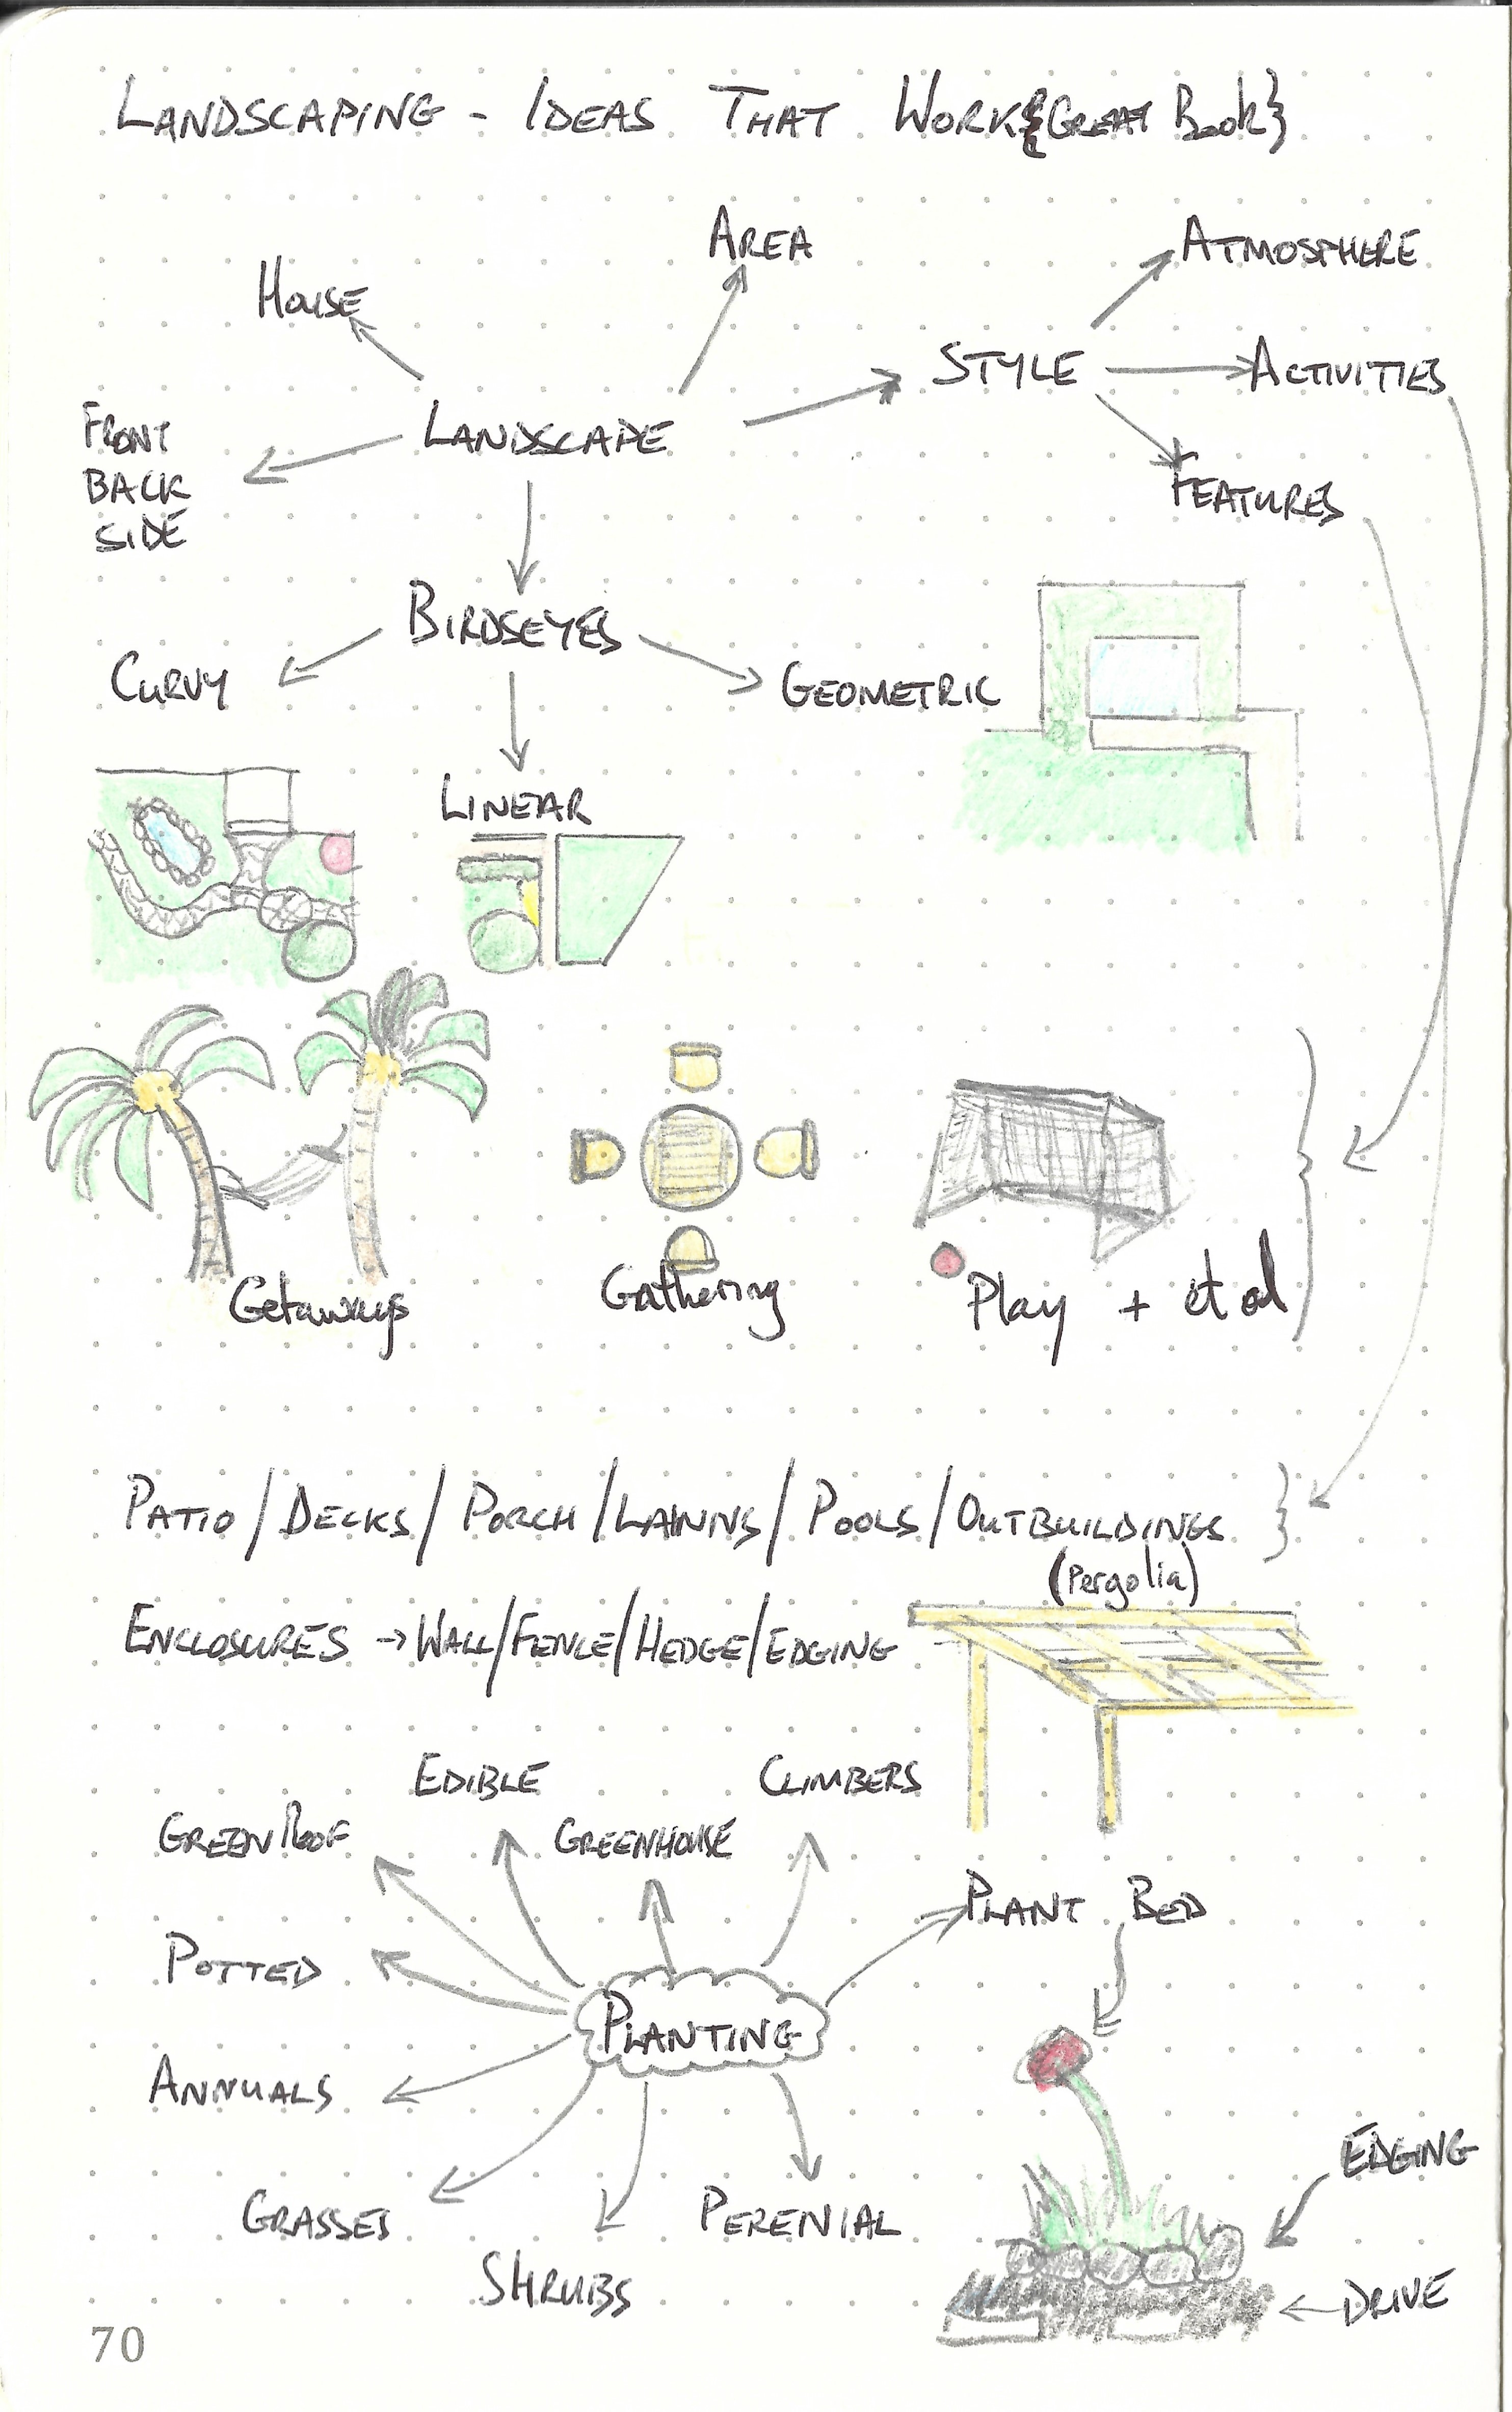 LANDSCAPING - IDEAS THAT WORK {GREAT Book}
AREA
ATMOSPHERE
HOUSE
STYLE
ACTIVITIES
FRONT
BACK
SIDE
LANDSCAPE
FEATURES
BIRDSEYES
CURVY
GEOMETRIC
LINEAR
Getaways
Gathering
Play + et al
PATIO / DECKS / PORCH / LAWNS / POOLS / OUTBUILDINGS }
(Pergolia)
ENCLOSURES → WALL/FENCE/HEDGE/EDGING
EDIBLE
CLIMBERS
GREEN ROOF
GREENHOUSE
PLANT BED
POTTED
PLANTING
ANNUALS
EDGING
GRASSES
PERENIAL
SHRUBS
DRIVE
70